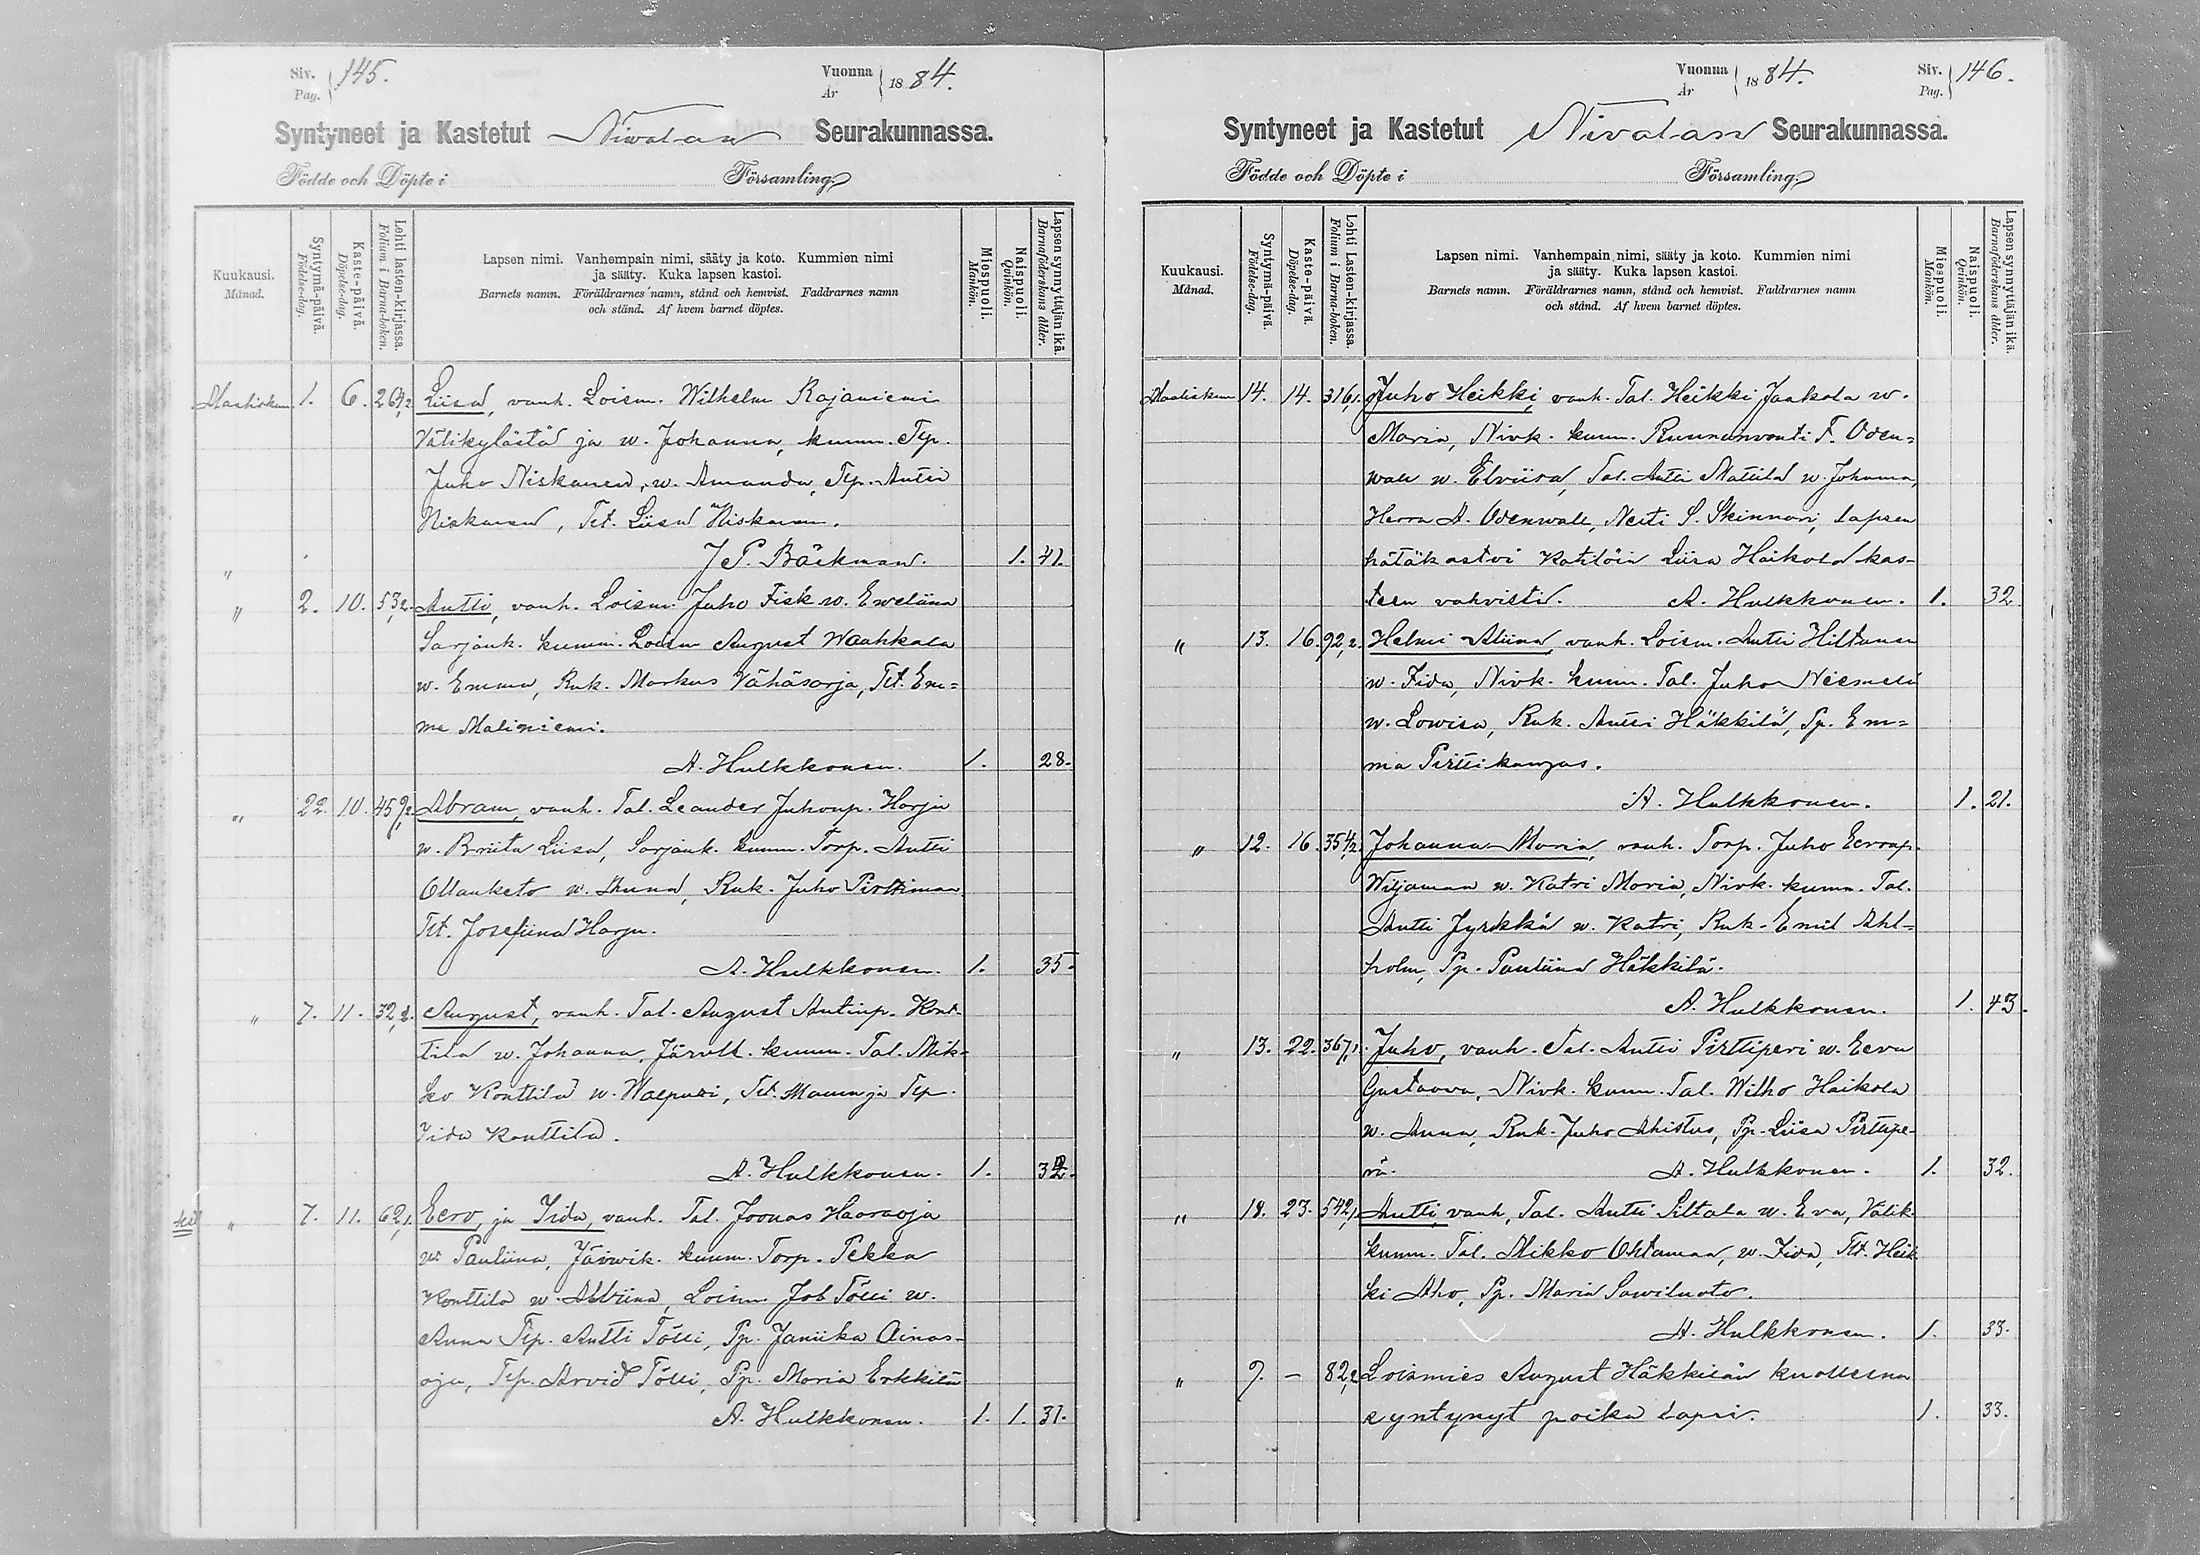 Siv. Pag. 145.
Vuonna År 1884.
Syntyneet ja Kastetut Nivalan Seurakunnassa.
Födde och Döpte i Församling.
Kuukausi. Månad.
Syntymä-päivä. Födelse-dag.
Kaste-päivä. Döpelse-dag.
Lehti lasten-kirjassa. Folium i Barna-boken.
Lapsen nimi. Vanhempain nimi, sääty ja koto. Kummien nimi
ja sääty. Kuka lapsen kastoi.
Barnets namn. Föräldrarnes namn, stånd och hemvist. Faddrarnes namn
och stånd. Af hvem barnet döptes.
Miespuoli. Mankön.
Naispuoli. Qvinkön.
Lapsen synnyttäjän ikä. Barnaföderskans ålder.
Maaliskuu 1. 6. 264,2 Liisa, vanh. Loism. Wilhelm Rajaniemi
Välikylästä ja w. Johanna, kumm. Tlp.
Juho Niskanen, w. Amanda, Tlp. Antti
Niskanen, Tlt. Liisa Niskanen.
" J P. Bäckman. 1. 41.
" 2. 10. 53,2. Antti, vanh. Loism. Juho Fisk w. Eweliina
Sarjank. kumm. Loism August Waahkala
w. Emma, Ruk. Markus Vähäsarja, Tlt. Em=
ma Maliniemi.
A. Hulkkonen. 1. 28.
" 22. 10. 459,2 Abram, vanh. Tal. Leander Juhonp. Harju
w. Briita Liisa, Sarjank. kumm. Torp. Antti
Ollanketo w. Anna, Ruk. Juho Pirttimaa
Tlt. Josefiina Harju.
A. Hulkkonen. 1. 35.
" 7. 11. 32,2. August, vanh. Tal. August Antinp. Kont-
tila w. Johanna, Järvik. kumm. Tal. Mik-
ko Konttila w. Walpuri, Tlp.
Iida Konttila.
A. Hulkkonen. 1.
" 7. 11. 62,1. Eero, ja Iida, vanh. Tal. Joonas Haaraoja
w. Pauliina, Järwik. kumm. Torp. Pekka
Konttila w. Albiina, Loism. Job Tölli w.
Anna Tlp. Antti Tölli, Pp. Janiika Ainas-
oja, Tlp. Arvid Tölli, Pp. Maria Erkkilä
A. Hulkkonen. 1. 1. 31.
Vuonna År 1884.
Siv. Pag. 146.
Syntyneet ja Kastetut Nivalan Seurakunnassa.
Födde och Döpte i Församling.
Kuukausi. Månad.
Syntymä-päivä. Födelse-dag.
Kaste-päivä. Döpelse-dag.
Lehti Lasten-kirjassa. Folium i Barna-boken.
Lapsen nimi. Vanhempain nimi, sääty ja koto. Kummien nimi
ja sääty. Kuka lapsen kastoi.
Barnets namn. Föräldrarnes namn, stånd och hemvist. Faddrarnes namn
och stånd. Af hvem barnet döptes.
Miespuoli. Mankön.
Naispuoli. Qvinkön.
Lapsen synnyttäjän ikä. Barnaföderskans ålder.
Maaliskuu 14. 14. 316,1. Juho Heikki, vanh. Tal. Heikki Jaakola w.
Maria, Nivk. kumm. Ruununvouti F. Oden=
wall w. Elviira, Tal. Antti Mattila w. Johanna,
Herra A. Odenwall, Neiti S. Skinnari, lapsen
hätäkastoi Kätilöin Liisa Haikola kas-
teen vahvisti. A. Hulkkonen. 1. 32
" 13. 16. 92,2. Helmi Aliina, vanh. Loism. Antti Hiltunen
w. Iida, Nivk. kumm. Tal. Juho Niemelä
w. Lowisa, Ruk. Antti Häkkilä, Pp. Em=
ma Pirttikangas.
A. Hulkkonen. 1. 21.
" 12. 16. 354,2. Johanna Maria, vanh. Torp. Juho Eeronp.
Wiljamaa w. Katri Maria, Nivk. kumm. Tal.
Antti Jyrkkä w. Katri, Ruk. Emil Ahl=
holm, Pp. Pauliina Häkkilä.
A. Hulkkonen. 1. 43.
" 13. 22. 367,1. Juho, vanh. Tal. Antti Pirttiperä w. Eeva
Gustaava, Nivk. kumm. Tal. Wilho Haikola
w. Anna, Ruk. Juho Ahistus, Pp. Liisa Pirttipe-
rä. A. Hulkkonen. 1. 32.
" 18. 23. 542,1. Antti, vanh, Tal. Antti Siltala w. Eva, Välik.
kumm. Tal. Mikko Ohtamaa, w. Iida, Tlt. Heik
ki Aho, Pp. Maria Sawiluoto.
A. Hulkkonen. 1. 33.
" 7. - 82,2 Loismies August Häkkilän kuolleena
syntynyt poika lapsi. 1. 33.